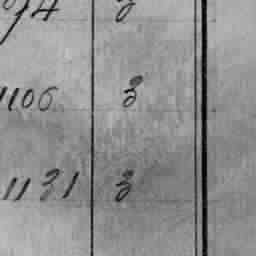 1106 3
1131 3